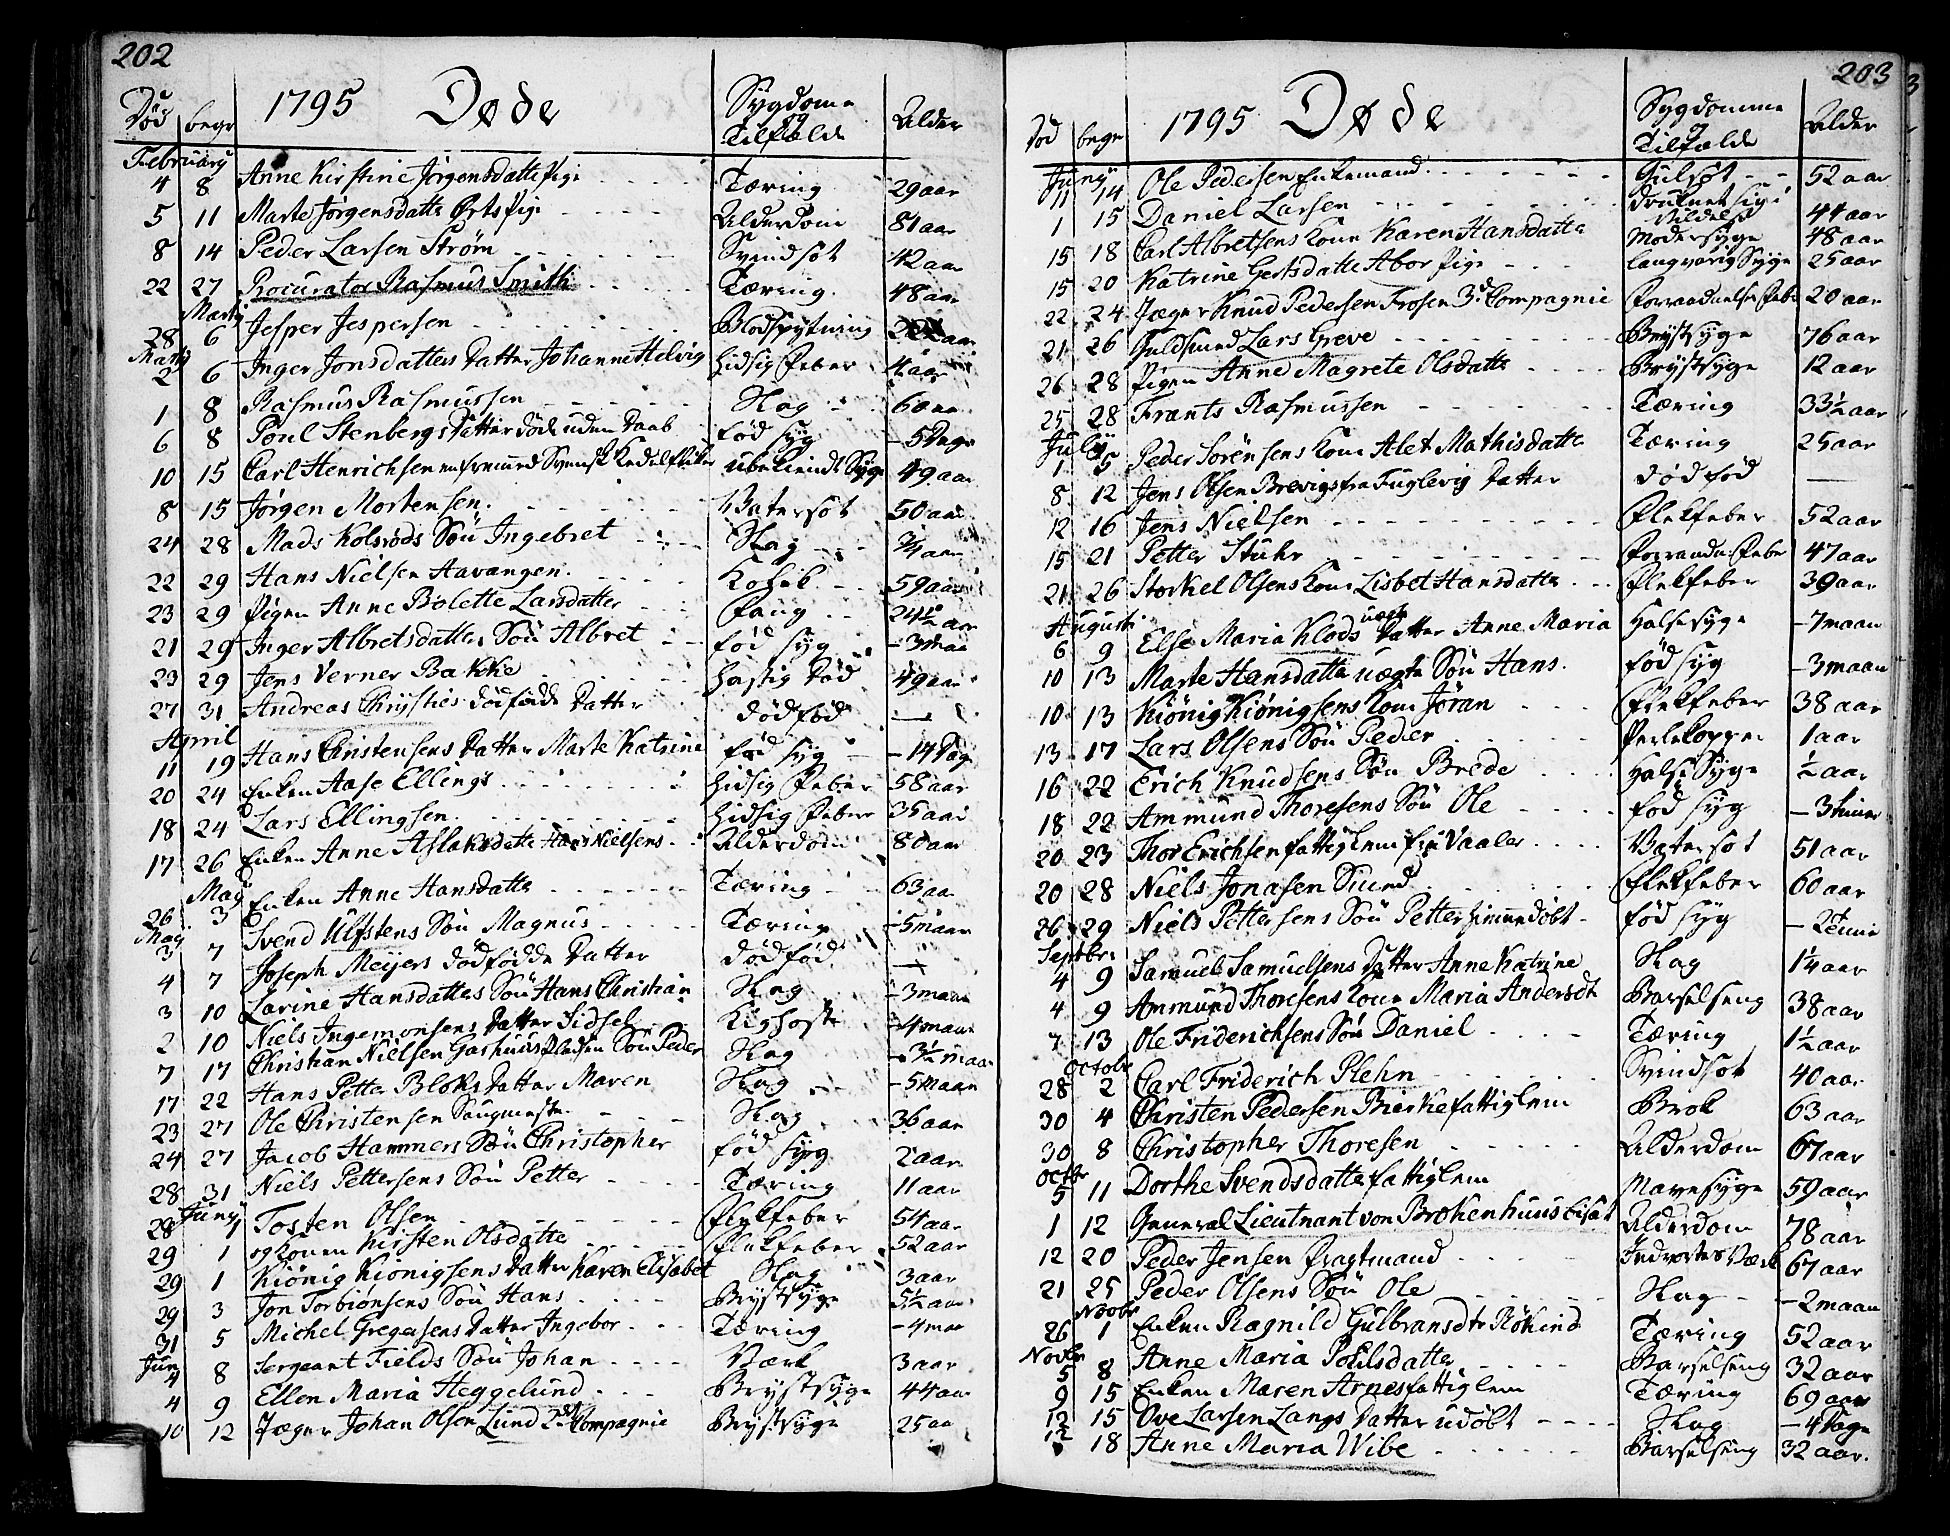 202
Død begr 1795 Døde Sygdom og Tilfælde Alder
February
4 8 Anne Kirstine Jørgensdatter Pige Tæring 29 aar
5 11 Marte Jørgensdatter Ørts Pige Alderdom 81 aar
8 14 Peder Larsen Strøm Svindsot 42 aar
22 27 Procurator Rasmus Smith Tæring 48 aar
Martj
28 6 Jesper Jespersen Blodspytning
Martj
2 6 Inger Jonsdatters Datter Johanne Helvig Hidsig Feber 4 aar
1 8 Rasmus Rasmussen Slag 60 aar
6 8 Poul Stenbergs Datter døde uden Daab fød syg - 5 Dage
10 15 Carl Henrichsen en Svensk ubekiendt Syge 49 aar
8 15 Jørgen Mortensen Vatersot 50 aar
24 28 Mads Kolsrøds Søn Ingebret Slag 3/4 aar
22 29 Hans Nielsen Havangen 59 aar
23 29 Pigen Anne Bolette Larsdatter 24½ aar
21 29 Inger Albretsdatters Søn Albret fød syg - 3 maa
23 29 Jens Verner Bakke Hastig Død 49 aar
27 31 Andreas Chrysties dødfødde Datter dødfød —
April
11 19 Hans Christensens Datter Marte Katrine fød syg - 14 Dag
20 24 Enken Aase Ellings Hidsig Feber 58 aar
18 24 Lars Ellingsen Hidsig Feber 35 aar
17 26 Enken Anne Aslaksdatter Hans Nielsens Alderdom 80 aar
Maj
26 3 Enken Anne Hansdatter Tæring 63 aar
Maj
3 7 Svend Ulfstens Søn Magnus Tæring - 5 maan
4 7 Joseph Meijers dødfødde Datter dødfød —
3 10 Larine Hansdatters Søn Hans Christian Slag - 3 maan
2 10 Niels Ingemonsens Datter Sidsel Kighoste - 4 maan
7 17 Christian Nielsen Søn Peder Slag - 3½ maan
17 22 Hans Petter Bloks Datter Maren Slag - 5 maan
23 27 Ole Christensen Saugmester Slag 36 aar
24 27 Jacob Hammers Søn Christopher fød syg 2 aar
28 31 Niels Pettersens Søn Petter Tæring 11 aar
Junij
28 1 Tosten Olsen Flekfeber 54 aar
29 1 og Konen Kirsten Olsdatter Flekfeber 52 aar
29 1 Kiönig Kiönigsens Datter Karen Elisabet Slag 3 aar
29 3 Jon Torbiönsens Søn Hans Brystsyge 5½ aar
31 5 Michel Gregersens Datter Ingebor Tæring - 4 maa
Jun
4 8 Sergeant Fields Søn Johan Værk 3 aar
4 9 Ellen Maria Heggelund Brystsyge 44 aar
10 12 Jæger Johan Olsen Lund 2det Compagnie Brystsyge 25 aar
203
Død begr 1795 Døde Sygdomme og Tilfælde Alder
Junij
11 14 Ole Pedersen Enkemand Gulsot 52 aar
1 15 Daniel Larsen druknet sig i Vildelse 44 aar
15 18 Carl Albretsens Kone Karen Hansdatter Modersyge 48 aar
15 20 Katrine Gertsdatter Abor Pige langvarig Syge 25 aar
22 24 Jæger Knud Pedersen Frosen 3d Compagnie Forraadnelse Feber 20 aar
21 26 Guldsmed Lars Greve Brystsyge 76 aar
26 28 Pigen Anne Magrete Olsdatter Brystsyge 12 aar
25 28 Frants Rasmussen Tæring 33½ aar
Julij
1 5 Peder Sørensens Kone Alet Mathisdatter Tæring 25 aar
8 12 Jens Olsen Brevigs fra Fuglevig Datter dødfød —
12 16 Jens Nielsen Flekfeber 52 aar
15 21 Petter Stuhr Forraadn. Feber 47 aar
21 26 Storkel Olsens Kone Lisbet Hansdatter Flekfeber 39 aar
Augusti
6 9 Else Maria Klods uægte Datter Anne Maria Halssyge - 7 maan
10 13 Marte Hansdatter uægte Søn Hans fød syg - 3 maan
10 13 Kiönig Kiönigsens Kone Jøran Flekfeber 38 aar
13 17 Lars Olsens Søn Peder Perlekopper 1 aar
16 22 Erich Knudsens Søn Brede Halse Syge ½ aar
18 22 Ammund Thoresens Søn Ole fød syg - 3 timer
20 23 Thor Erichsen fattiglem fra Vaaler Vatersot 51 aar
20 28 Niels Jonasen Sund Flekfeber 60 aar
26 29 Niels Pettersens Søn Petter hiemmedøbt fød syg - 2 timer
Septbr
4 9 Samuel Samuelsens Datter Anne Katrine Slag 1¼ aar
4 9 Ammund Thoresens Kone Maria Andersdt Barselseng 38 aar
7 13 Ole Friderichsens Søn Daniel Tæring 1½ aar
Octobr
28 2 Carl Friderich Plehn Svindsot 40 aar
30 4 Christen Pedersen Bierke fattiglem Brok 63 aar
30 8 Christopher Thoresen Alderdom 67 aar
Octbr
5 11 Dorthe Svendsdatter fattiglem Mavesyge 59 aar
1 12 General Lieutnant von Brokenhuus bisat Alderdom 78 aar
12 20 Peder Jensen Fragtmand Indvortes Værk 67 aar
21 25 Peder Olsens Søn Ole Slag - 2 maan
Novbr
26 1 Enken Ragnild Gulbransdtr Tæring 52 aar
Novbr
5 8 Anne Maria Poulsdatter Barselseng 32 aar
9 15 Enken Maren Arnes fattiglem Tæring 69 aar
12 15 Ove Larsen Langs Datter udøbt Slag - 4 Dage
12 18 Anne Maria Wibe Barselseng 32 aar.